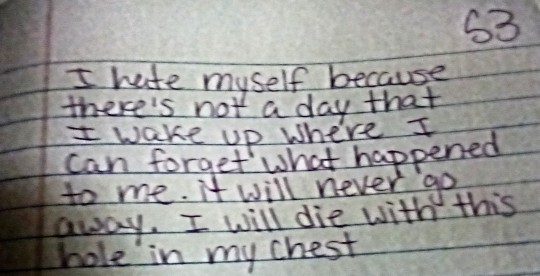 53
I hate myself because
there's not a day that
I wake up where I
can forget what happened
to me. it will never go
away. I will die with this
hole in my chest